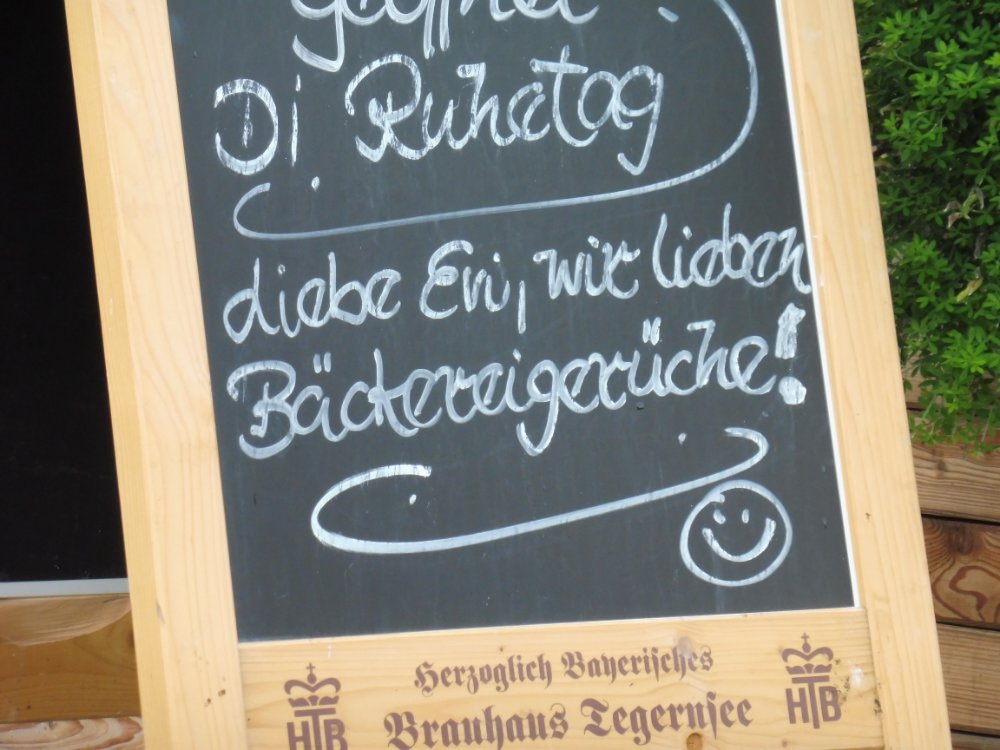 geöffnet!
Di Ruhetag
Liebe Evi, wir lieben
Bäckereigerüche!
Herzoglich Bayerisches
HTB Brauhaus Tegernsee HTB